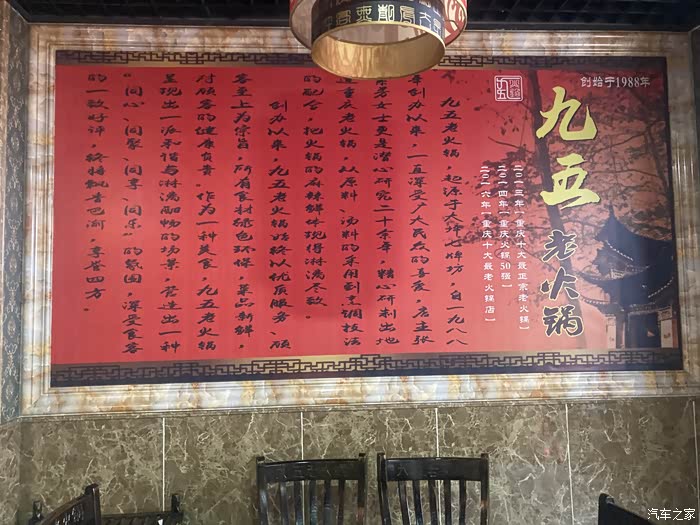 创始于1988年
九五
老火锅
二〇一三年【重庆十大最正宗老火锅】
二〇一四年【重庆火锅50强】
二〇一六年【重庆十大最老火锅店】
九五老火锅，起源于大坪七牌坊，自一九八八
年创办以来，一直深受广大民众的喜爱，店主张
女士更是潜心研究二十余年，精心研制出地
道重庆老火锅，从原料、汤料的采用到烹调技法
的配合，把火锅的麻辣鲜体现得淋漓尽致。
创办以来，九五老火锅始终以优质服务、顾
客至上为宗旨，所有食材绿色环保、菜品新鲜，
对顾客的健康负责。作为一种美食，九五老火锅
呈现出一派和谐与淋漓酣畅的场景，营造出一种
“同心、同聚、同享、同乐”的氛围，深受食客
的一致好评，终将飘香巴渝，享誉四方。
汽车之家